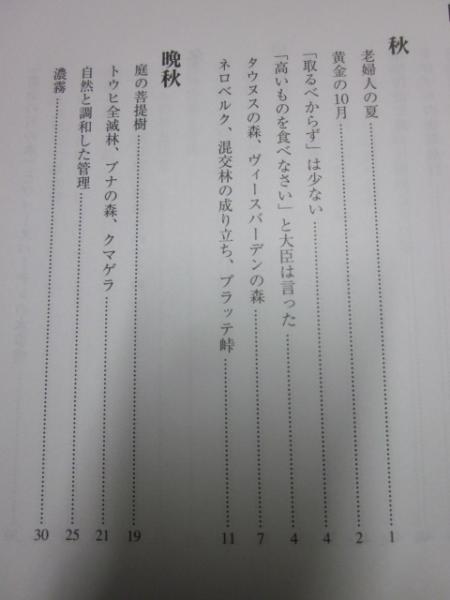 秋
老婦人の夏……1
黄金の10月……2
「取るべからず」は少ない……4
「高いものを食べなさい」と大臣は言った……4
タウヌスの森、ヴィースバーデンの森……7
ネロベルク、混交林の成り立ち、プラッテ峠……11
晩秋
庭の菩提樹……19
トウヒ全滅林、ブナの森、クマゲラ……21
自然と調和した管理……25
濃霧……30